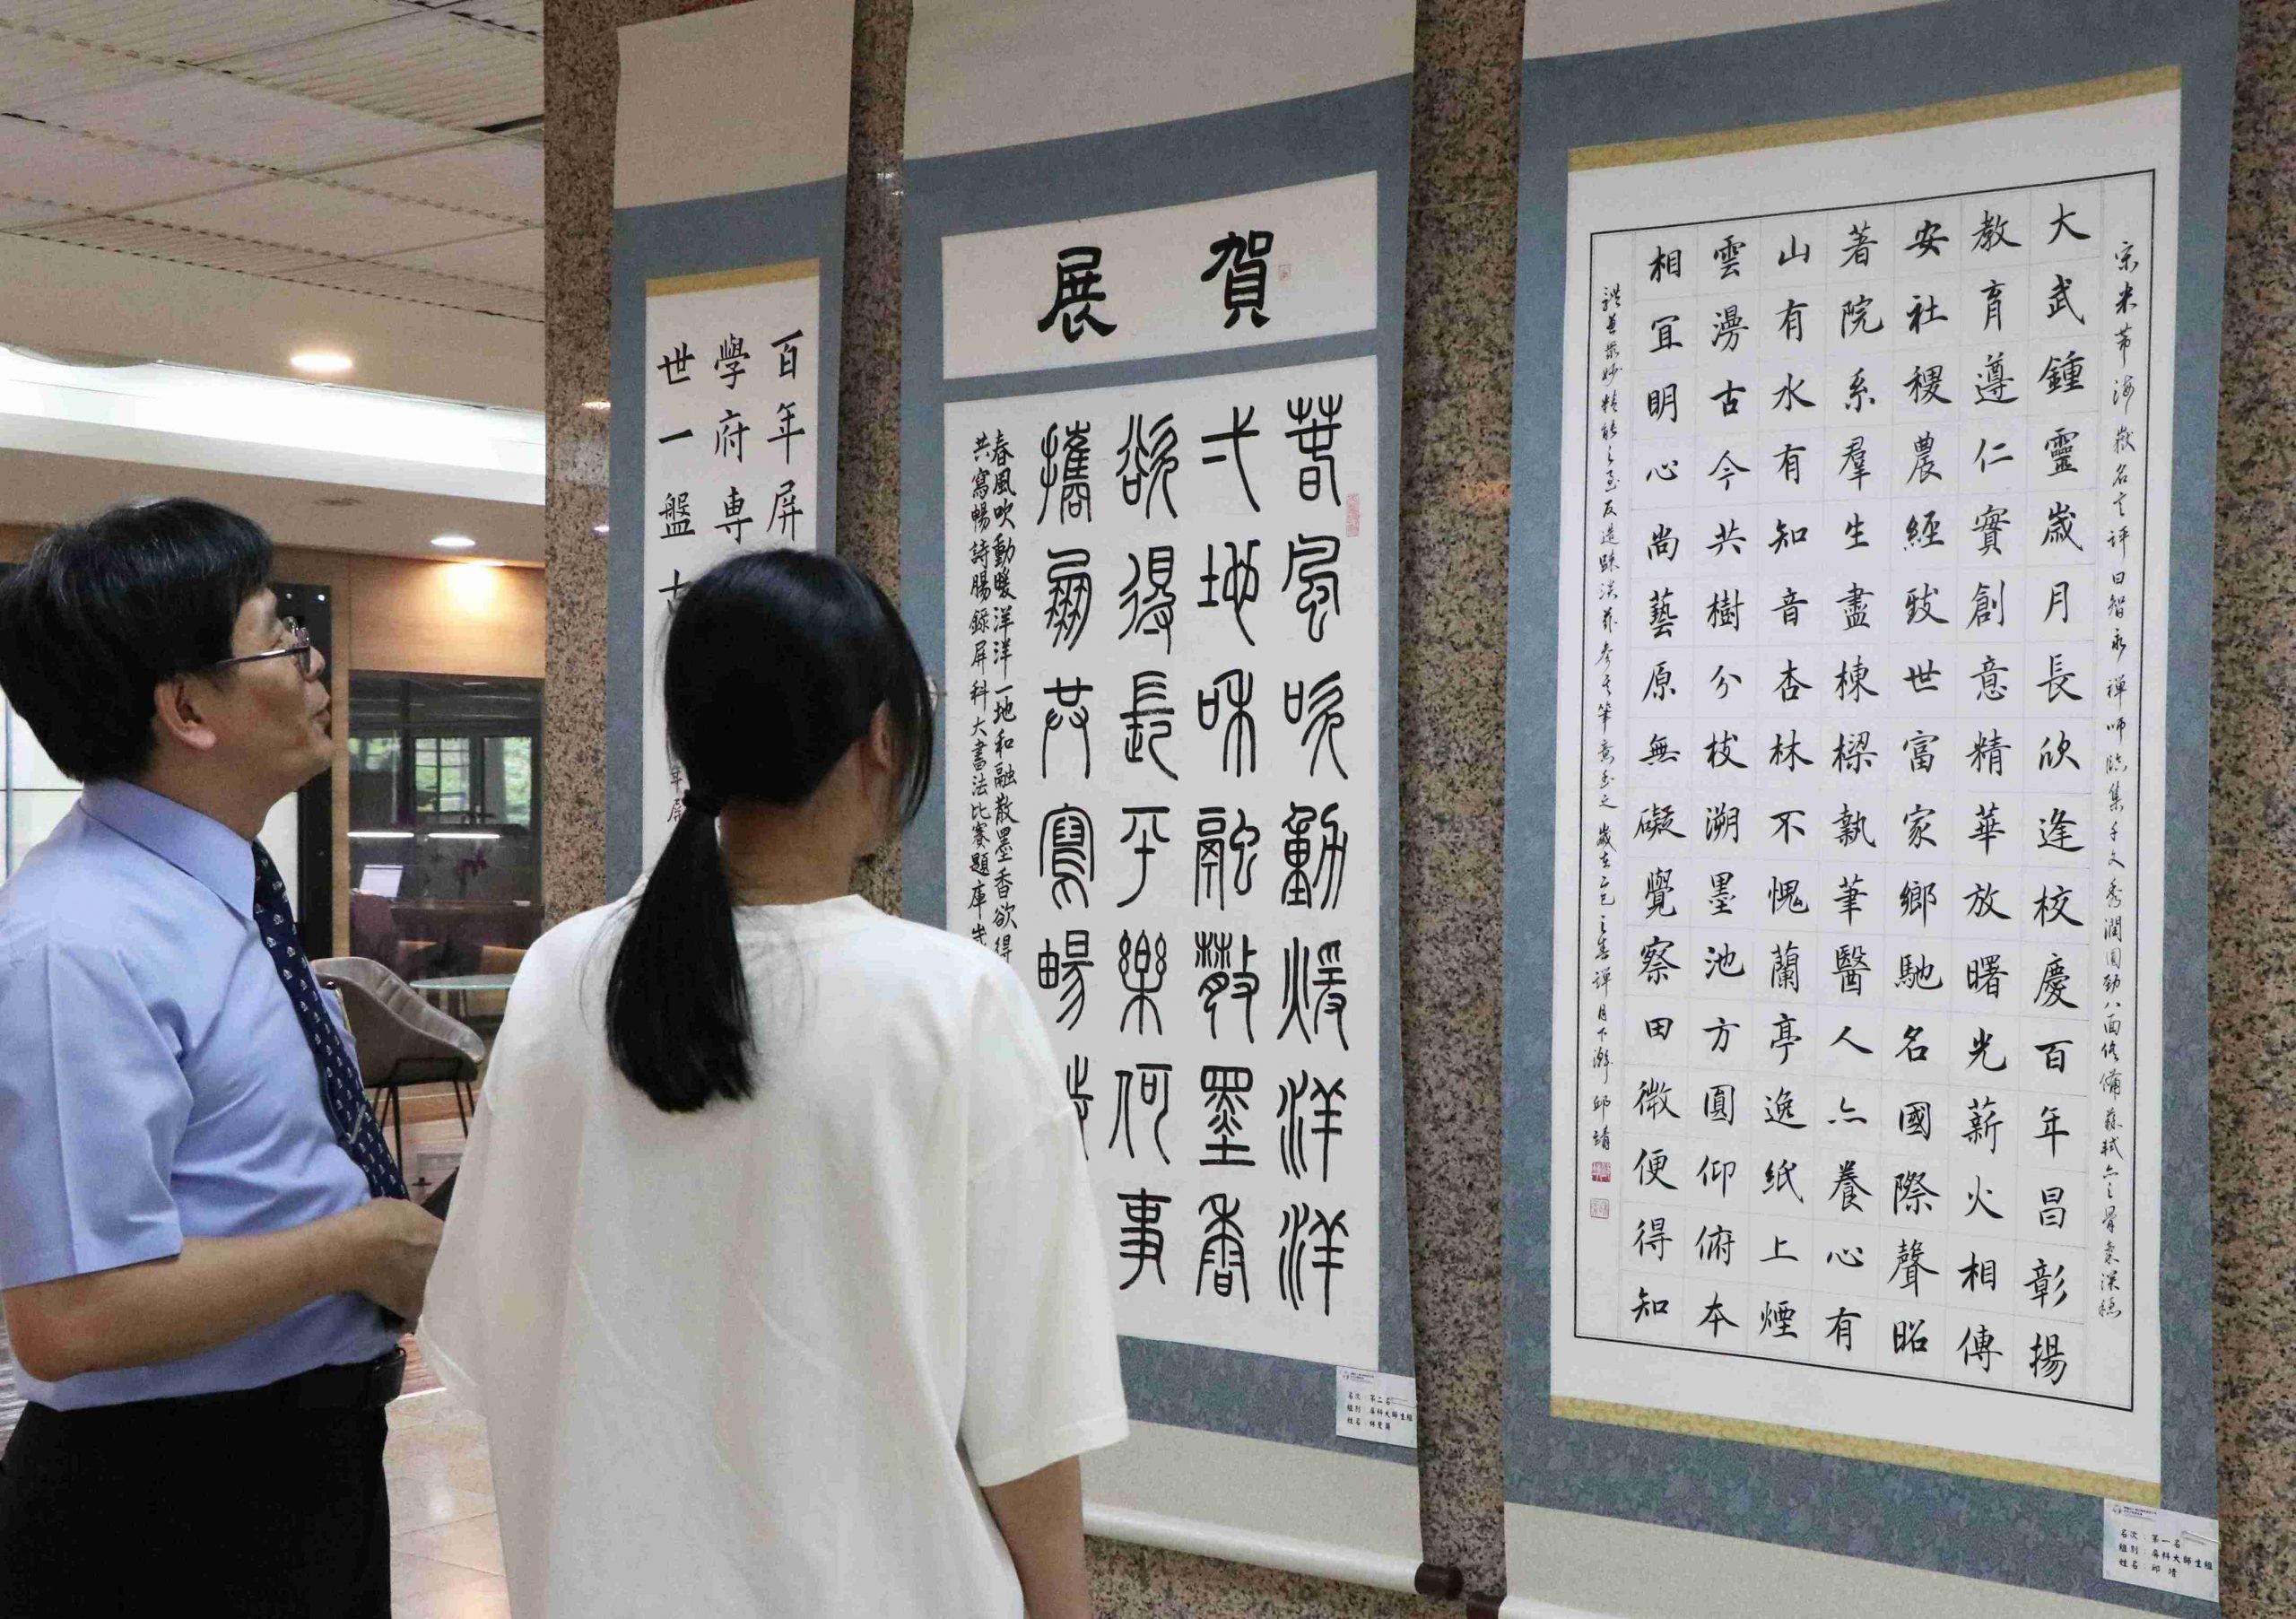 宋米芾海嶽名言評曰智永禪師臨集千文秀潤圓勁八面俱備蘇軾亦云骨氣深穩
大武鍾靈歲月長欣逢校慶百年昌彰揚
教育遵仁實創意精華放曙光薪火相傳
安社稷農經致世富家鄉馳名國際聲昭
著院系羣生盡棟樑執筆醫人亦養心有
山有水有知音杏林不愧蘭亭逸紙上煙
雲漫古今共樹分枝溯墨池方圓仰俯本
相宜明心尚藝原無礙覺察田微便得知
體兼眾妙精能之至反造疎淡 歲在乙巳 月下澣 邱靖
名次：第一名
組別：屏科大師生組
姓名：邱靖
賀展
春風吹動暖洋洋
弌地和融散墨香
欲得長平樂何事
攜朋共寫暢
春風吹動暖洋洋一地和融散墨香欲得
共寫暢詩腸錄屏科大書法比賽題庫歲
名次：第二名
組別：屏科大師生組
百年屏
學府専
世一盤